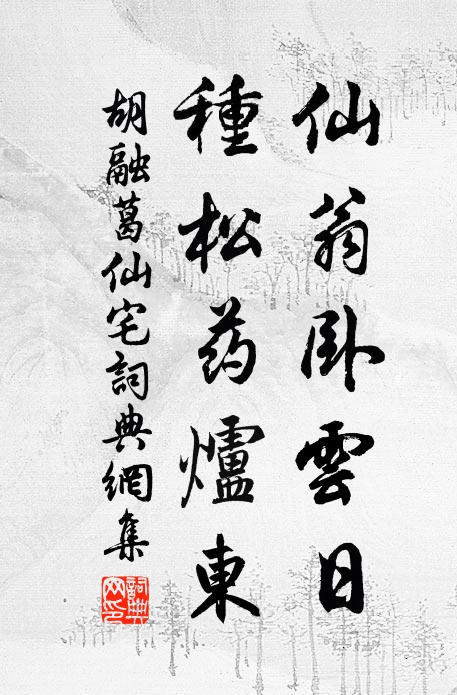 仙翁卧雲日
種松药爐東
胡融葛仙宅詞典網集
詞典网印